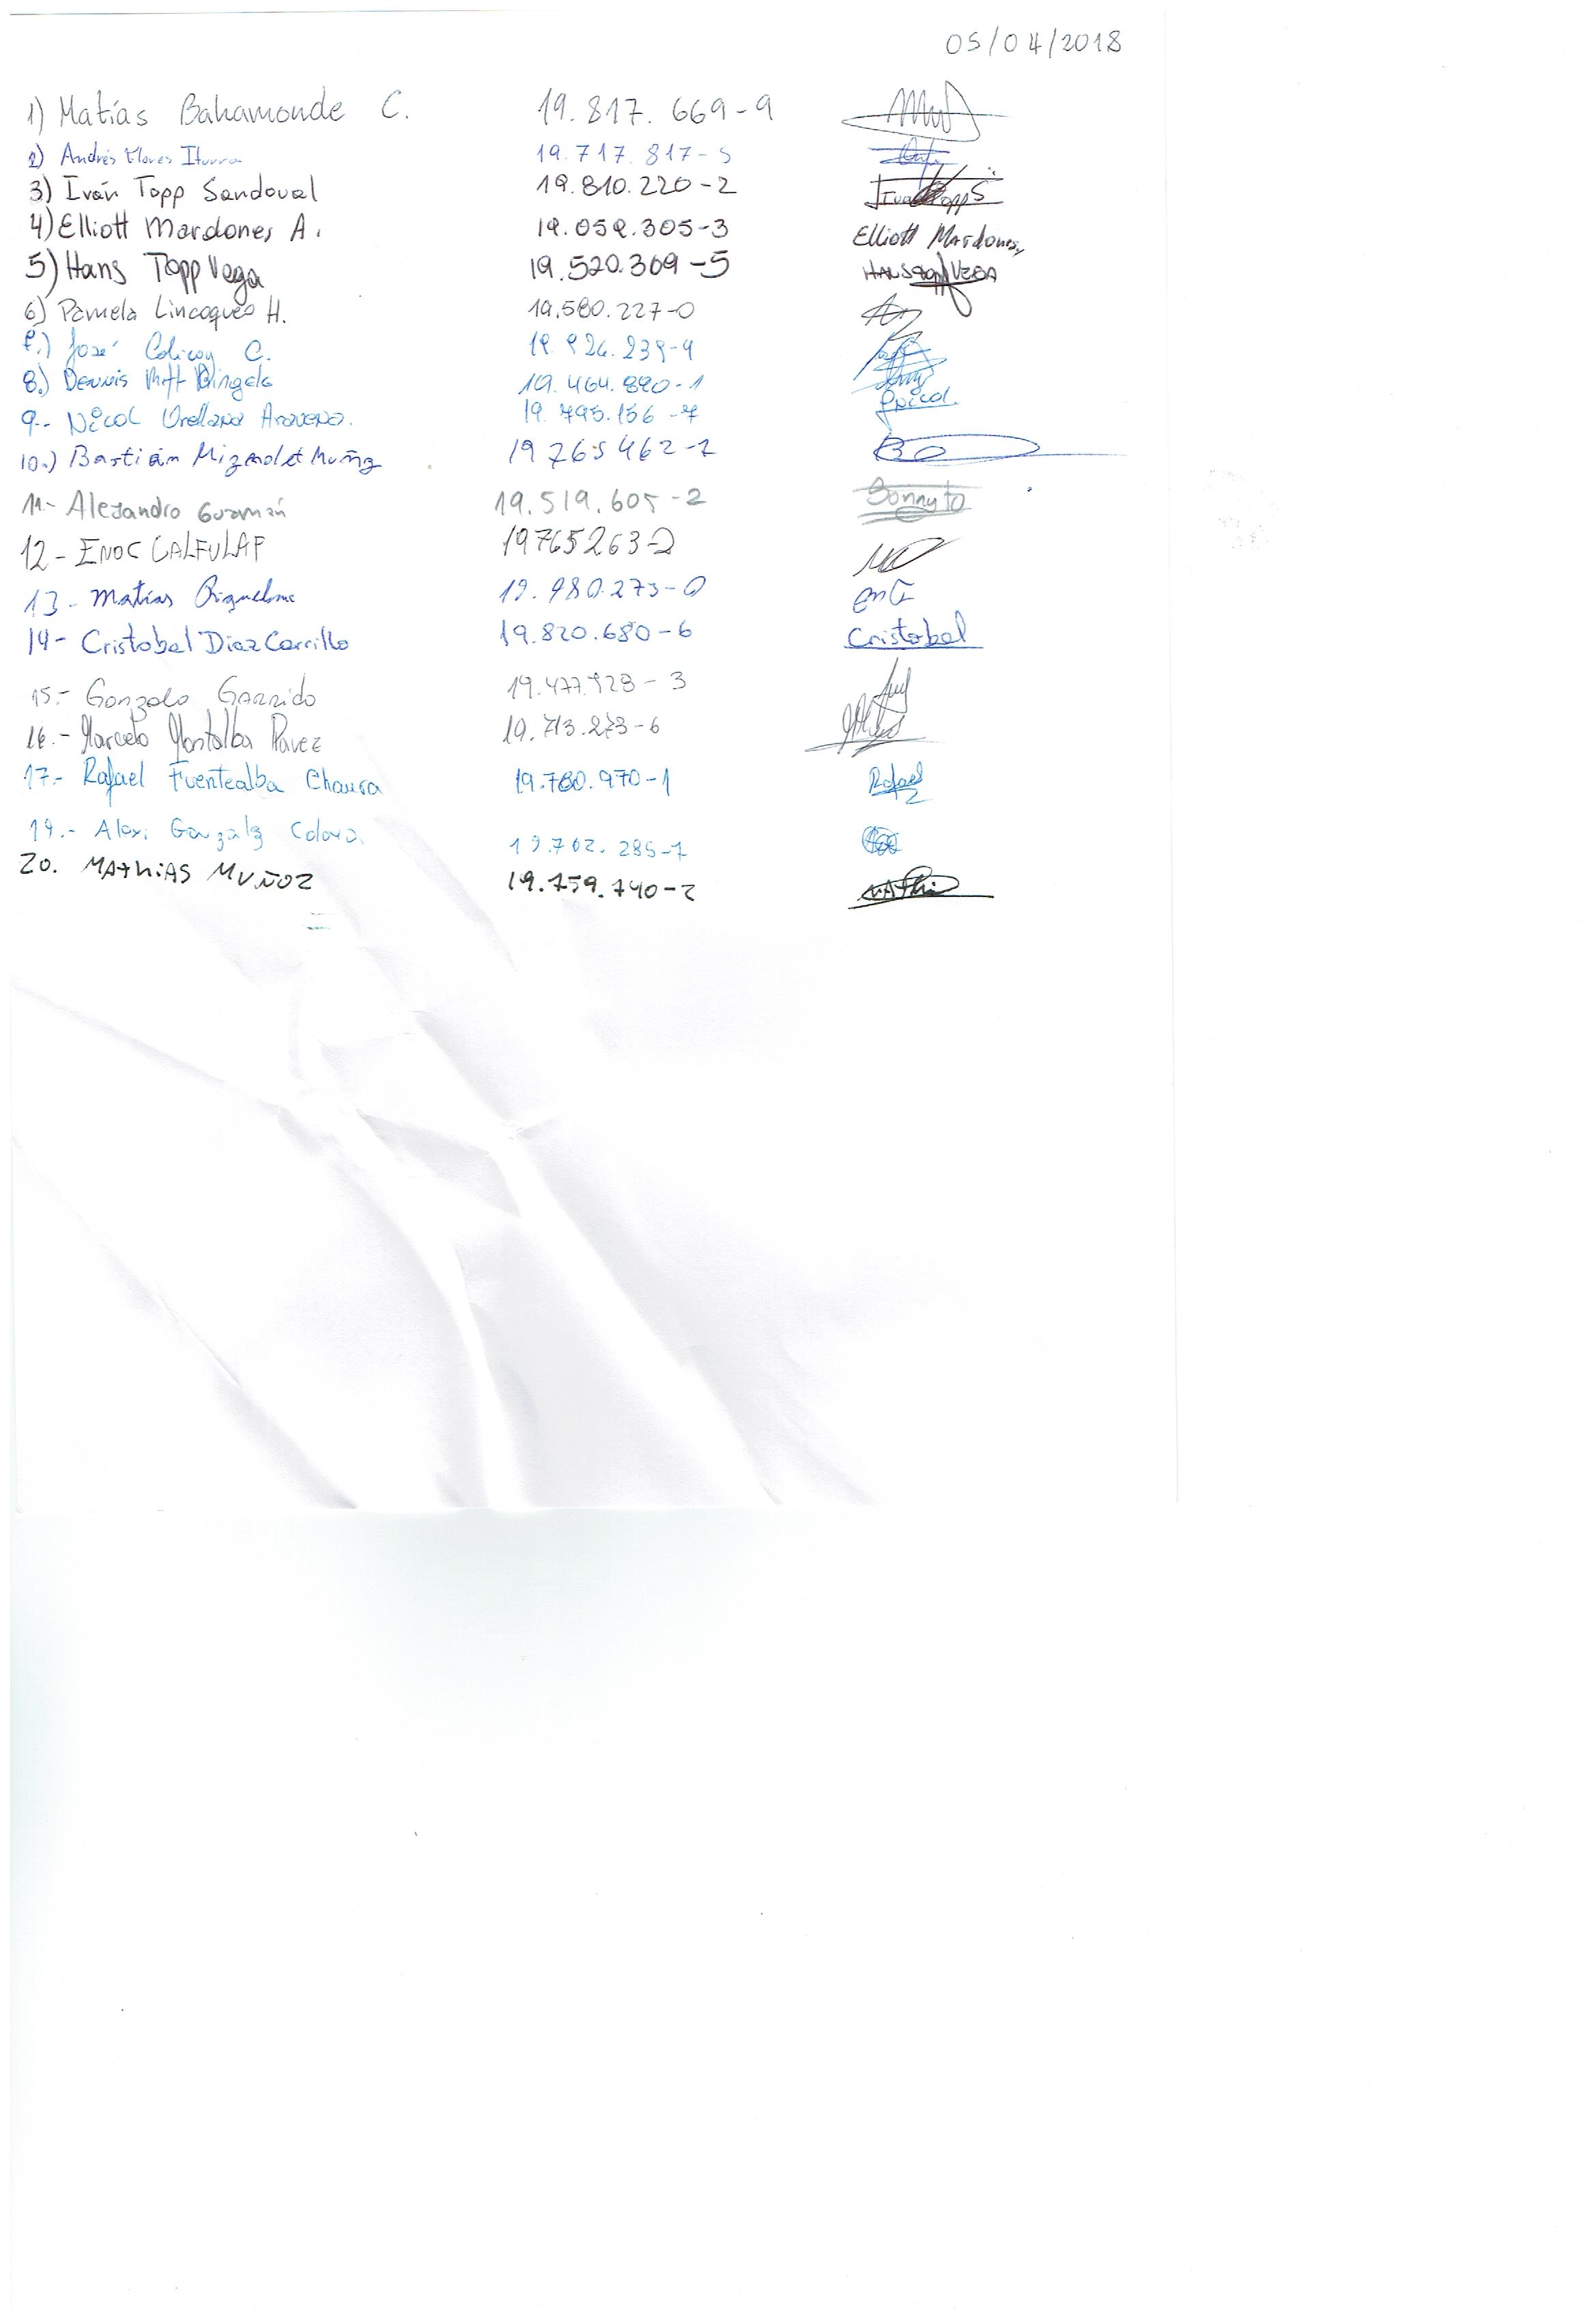 05/04/2018
1) Matías Bahamonde C. 19.817.669-9
2) Andrés Flores Iturra 19.717.817-5
3) Iván Topp Sandoval 19.810.220-2 Ivan Topp S
4) Elliott Mardones A. 19.059.305-3 Elliott Mardones
5) Hans Topp Vega 19.520.309-5 HANS Topp VEGA
6) Pamela Lincoqueo H. 19.580.227-0
7.) José Colicoy C.
8.) Dennis 19.464.890-1
9.- Nicol Orellana Aravena. 19.795.156-7 Nicol.
10.) Bastián Muñoz 19765462-1
11.- Alejandro Guzmán 19.519.605-2
12- ENOC CALFULAF 19765263-2
13- Matías Riquelme 19.980.273-0
14- Cristobal Diaz Carrillo 19.820.680-6 Cristobal
15.- Gonzalo Garrido 19.477.928-3
16.- Marcelo Montalba Pavez 19.713.273-6
17.- Rafael Fuentealba Chaura 19.780.970-1 Rafael
19.- Alexi González 19.702.285-7
20. MATHIAS MUÑOZ 19.759.740-2